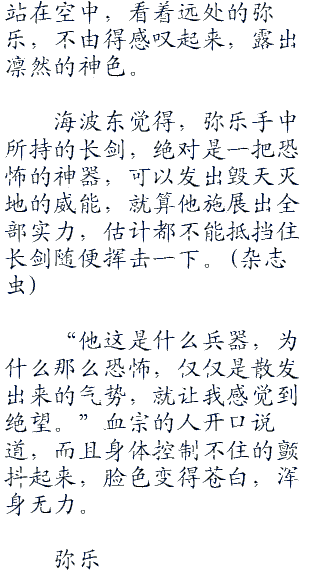 站在空中，看着远处的弥
乐，不由得感叹起来，露出
凛然的神色。
海波东觉得，弥乐手中
所持的长剑，绝对是一把恐
怖的神器，可以发出毁天灭
地的威能，就算他施展出全
部实力，估计都不能抵挡住
长剑随便挥击一下。(杂志
虫)
“他这是什么兵器，为
什么那么恐怖，仅仅是散发
出来的气势，就让我感觉到
绝望。”血宗的人开口说
道，而且身体控制不住的颤
抖起来，脸色变得苍白，浑
身无力。
弥乐